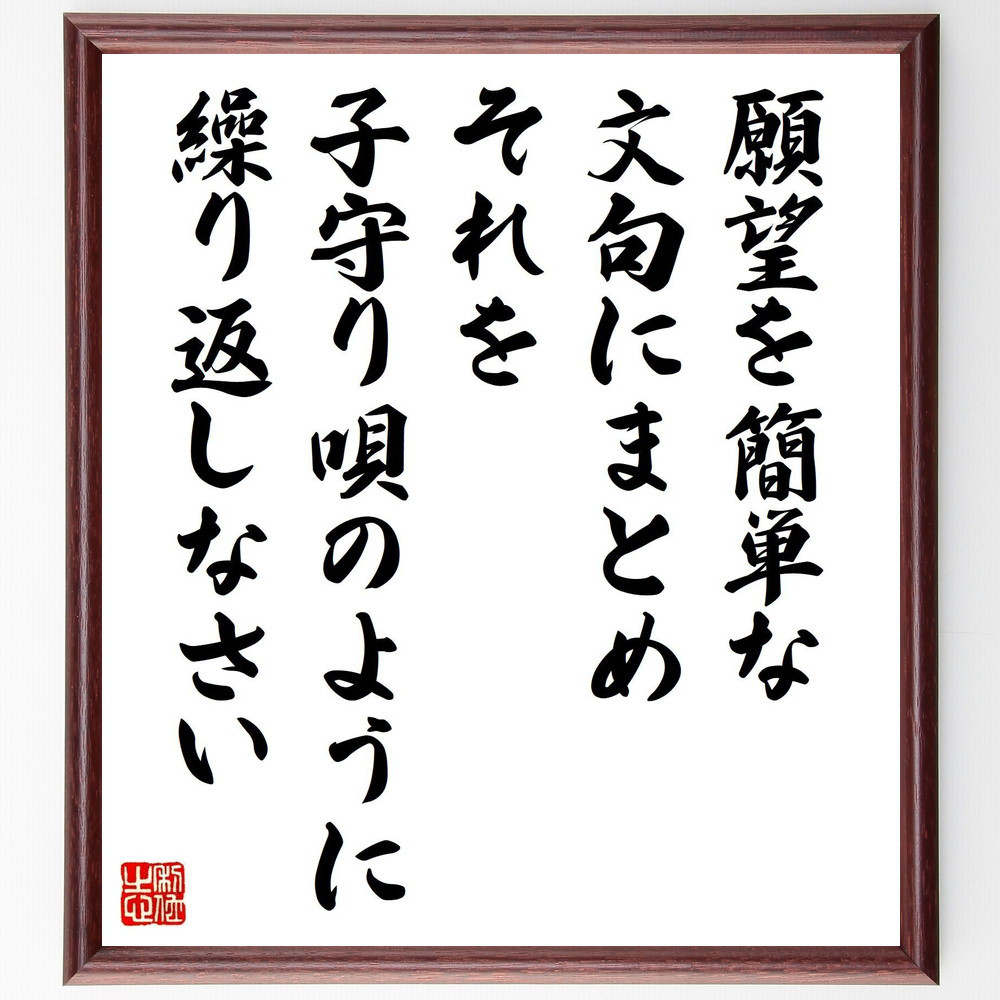 願望を簡単な
文句にまとめ
それを
子守り唄のように
繰り返しなさい